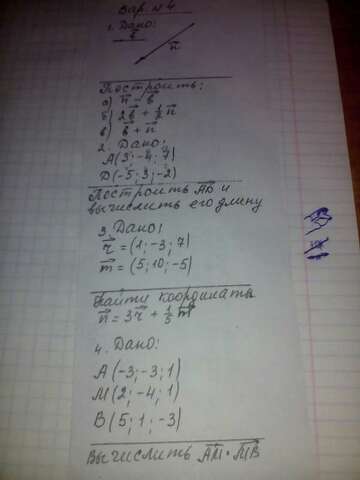 Вар. №4
1. Дано:
в⃗
n⃗
Построить:
а) n⃗ - в⃗
б) 2в⃗ + 1/2 n⃗
в) в⃗ + n⃗
2. Дано:
А(3; -4; 7)
D(-5; 3; -2)
Построить АD⃗ и
вычислить его длину
3. Дано:
r⃗ = (1; -3; 7)
m⃗ = (5; 10; -5)
Найти координаты
n⃗ = 3r⃗ + 1/5 m⃗
4. Дано:
А (-3; -3; 1)
М (2; -4; 1)
В (5; 1; -3)
Вычислить АМ⃗ · МВ⃗